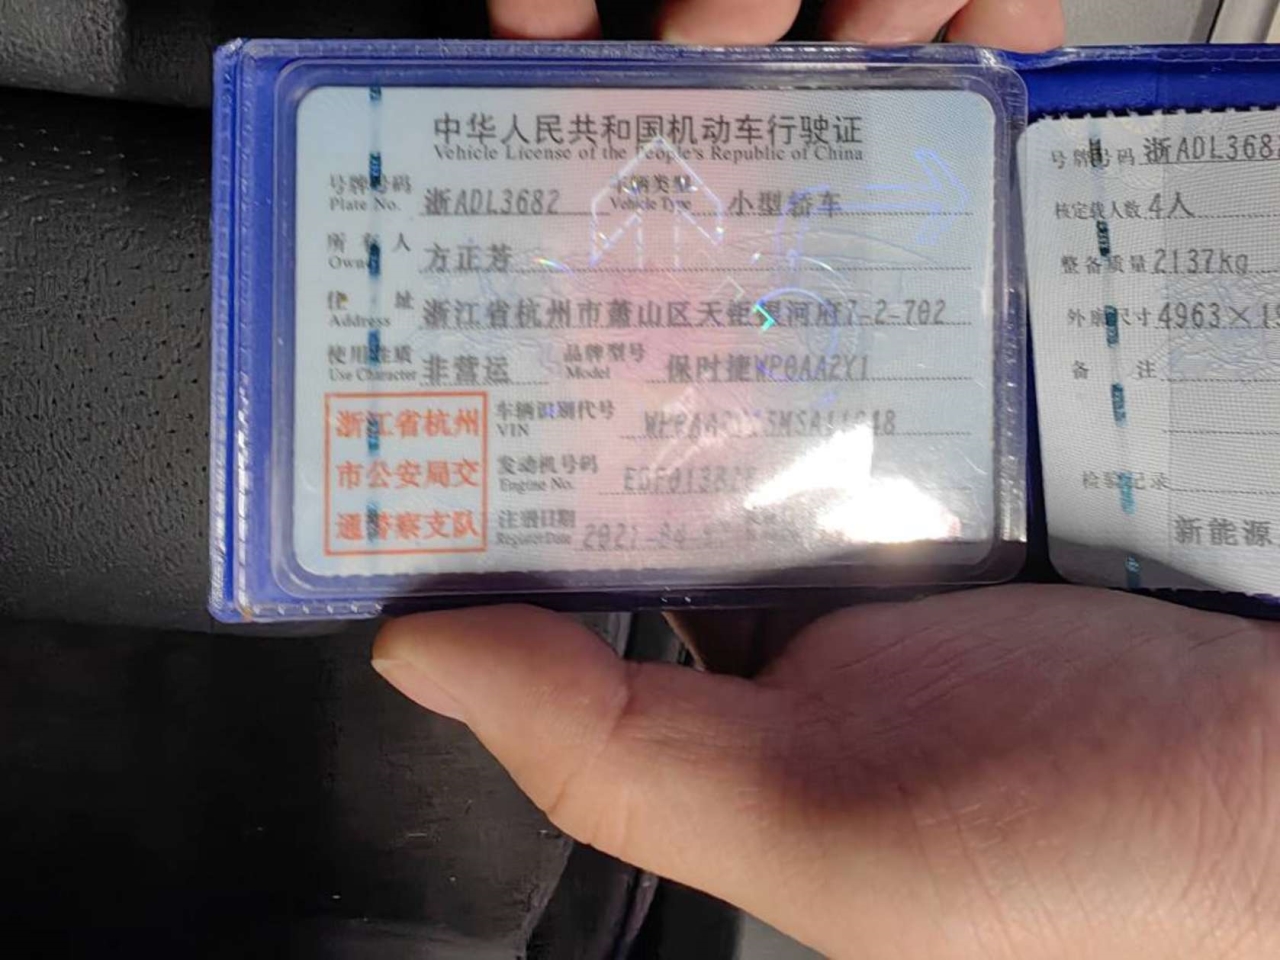 中华人民共和国机动车行驶证
Vehicle License of the People's Republic of China
号牌号码 浙ADL3682 车辆类型 小型轿车
Plate No. Vehicle Type
所有人 方正芳
Owner
住址 浙江省杭州市萧山区天钜银河府7-2-702
Address
使用性质 非营运 品牌型号 保时捷WP0AA2Y1
Use Character Model
浙江省杭州
市公安局交
通警察支队
车辆识别代号
VIN
发动机号码
Engine No.
注册日期
Register Date
号牌号码 浙ADL368
核定载人数 4人
整备质量 2137kg
外廓尺寸 4963×
备注
检验记录
新能源